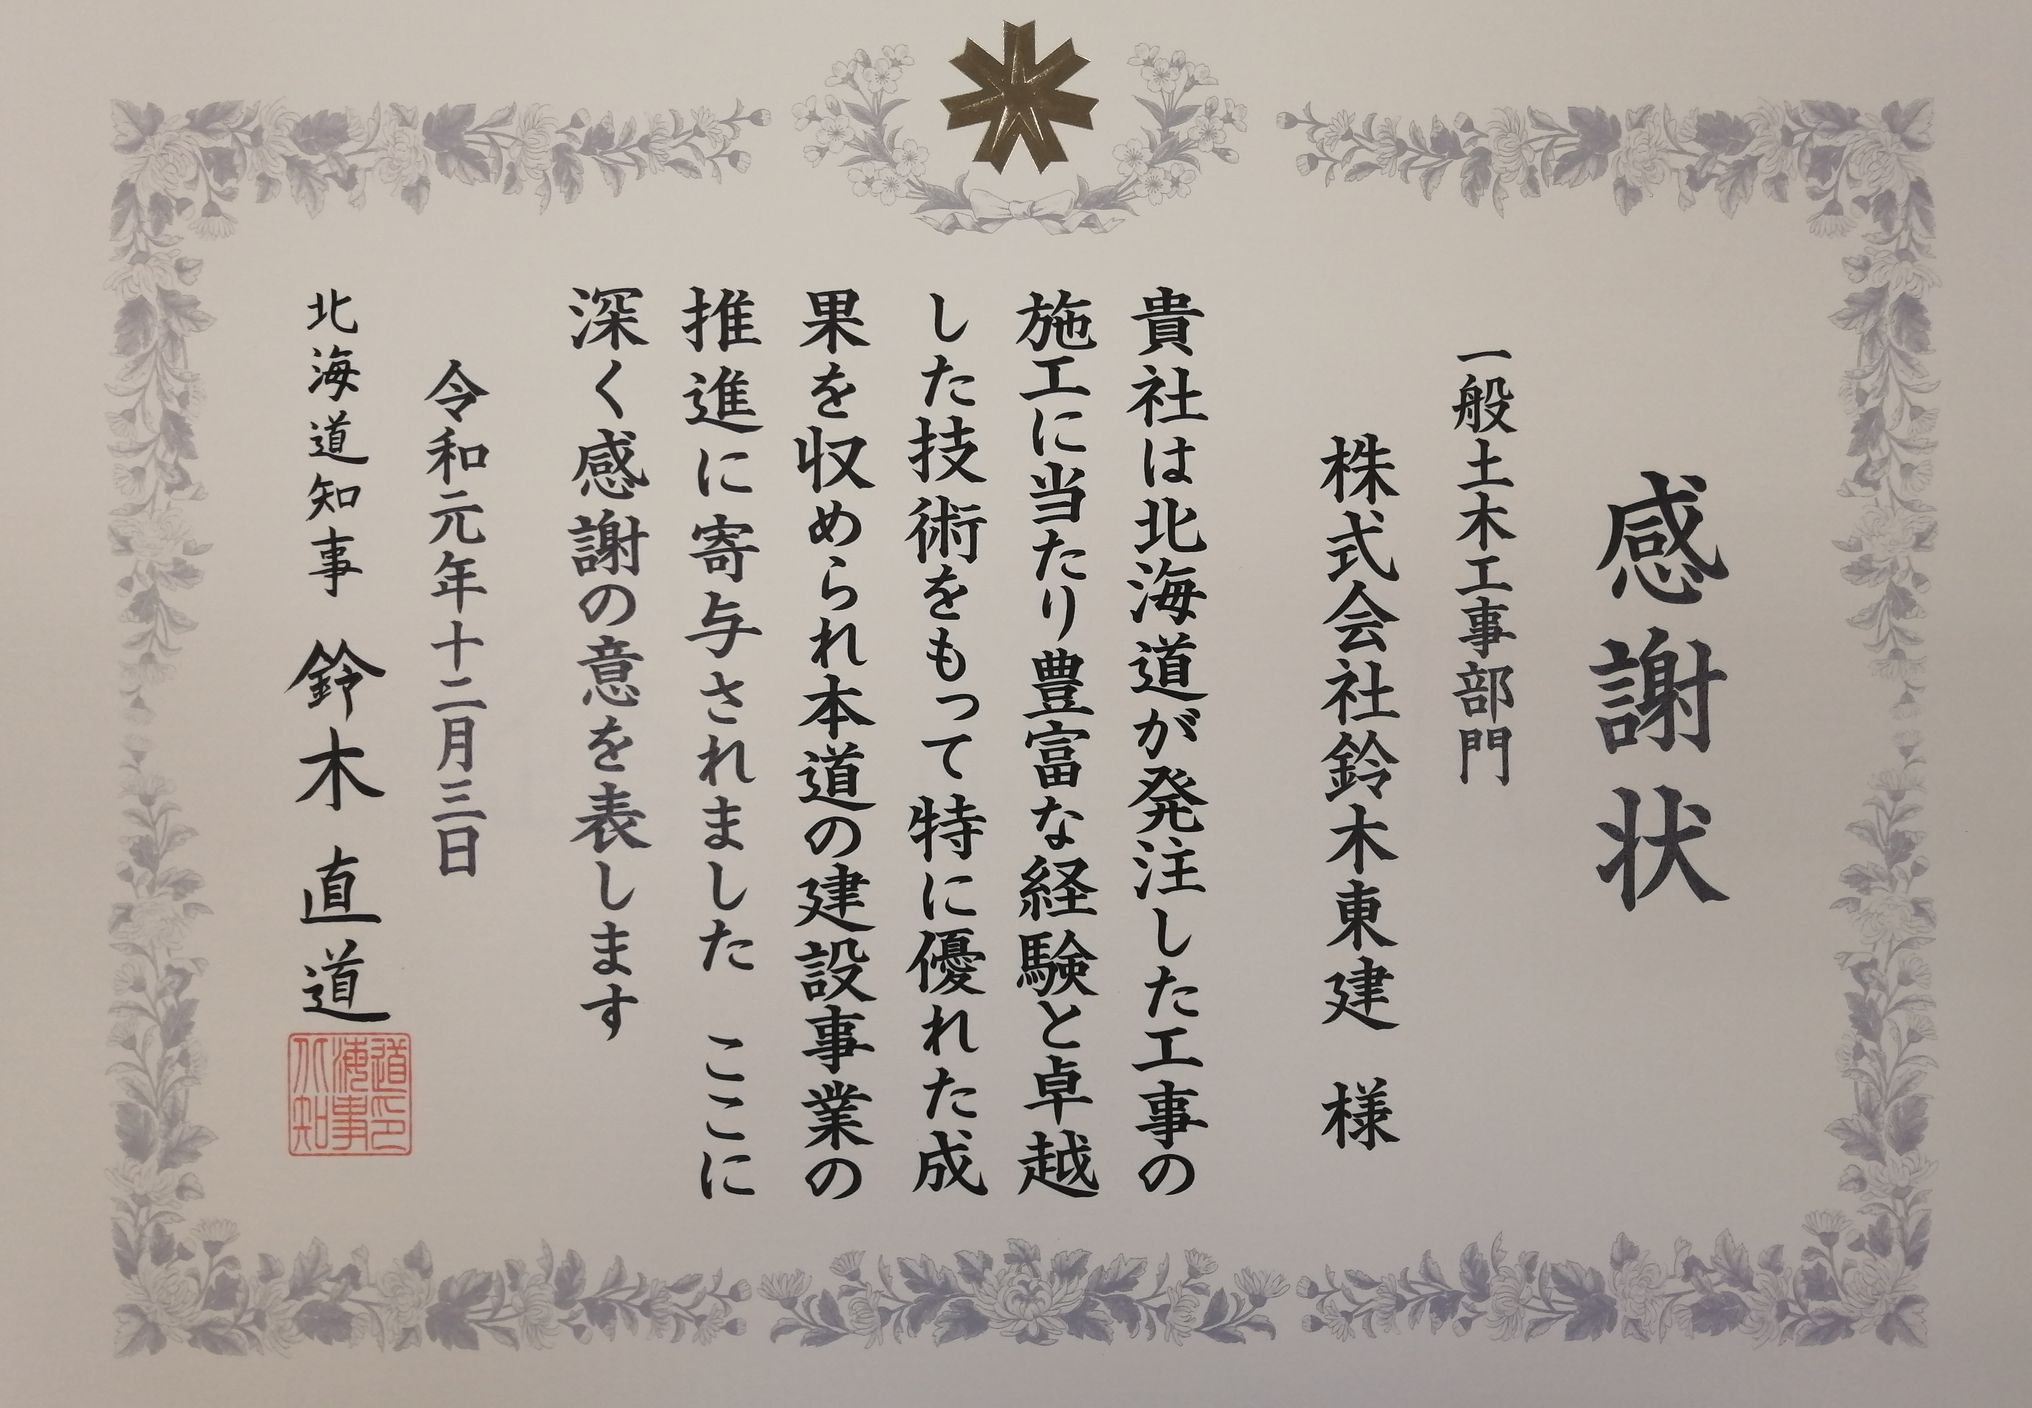 感謝状
一般土木工事部門
株式会社鈴木東建 様
貴社は北海道が発注した工事の
施工に当たり豊富な経験と卓越
した技術をもって特に優れた成
果を収められ本道の建設事業の
推進に寄与されました ここに
深く感謝の意を表します
令和元年十二月三日
北海道知事 鈴木直道
北海道知事印